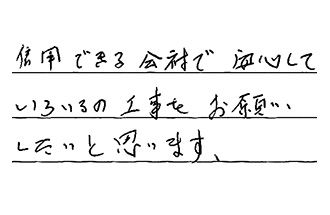 信用できる会社で安心して
いろいろの工事をお願い
したいと思います、